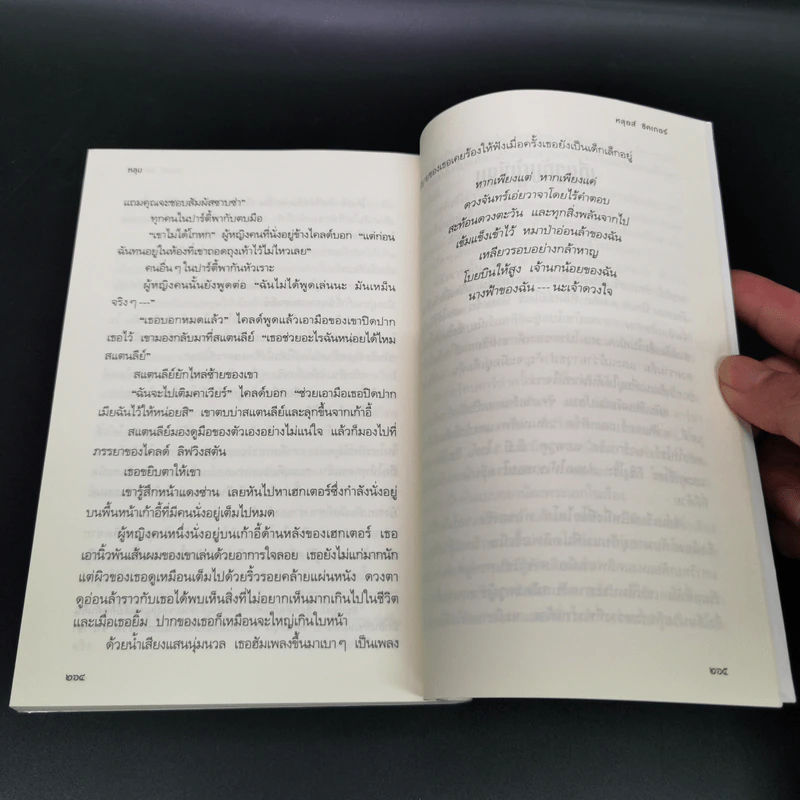 หลุม
แถมคุณจะชอบสัมผัสซาบซ่า"
ทุกคนในปาร์ตี้พากันตบมือ
"เขาไม่ได้โกหก" ผู้หญิงคนที่นั่งอยู่ข้างไคลด์บอก "แต่ก่อน
ฉันทนอยู่ในห้องที่เขาถอดถุงเท้าไว้ไม่ไหวเลย"
คนอื่นๆ ในปาร์ตี้พากันหัวเราะ
ผู้หญิงคนนั้นยังพูดต่อ "ฉันไม่ได้พูดเล่นนะ มันเหม็น
จริงๆ ---"
"เธอบอกหมดแล้ว" ไคลด์พูดแล้วเอามือของเขาปิดปาก
เธอไว้ เขามองกลับมาที่สแตนลีย์ "เธอช่วยอะไรฉันหน่อยได้ไหม
สแตนลีย์"
สแตนลีย์ยักไหล่ซ้ายของเขา
"ฉันจะไปเติมคาเวียร์" ไคลด์บอก "ช่วยเอามือเธอปิดปาก
เมียฉันไว้ให้หน่อยสิ" เขาตบบ่าสแตนลีย์และลุกขึ้นจากเก้าอี้
สแตนลีย์มองดูมือของตัวเองอย่างไม่แน่ใจ แล้วก็มองไปที่
ภรรยาของไคลด์ ลิฟวิงสตัน
เธอขยิบตาให้เขา
เขารู้สึกหน้าแดงซ่าน เลยหันไปหาเฮกเตอร์ซึ่งกำลังนั่งอยู่
บนพื้นหน้าเก้าอี้ที่มีคนนั่งอยู่เต็มไปหมด
ผู้หญิงคนหนึ่งนั่งอยู่บนเก้าอี้ด้านหลังของเฮกเตอร์ เธอ
เอานิ้วพันเส้นผมของเขาเล่นด้วยอาการใจลอย เธอยังไม่แก่มากนัก
แต่ผิวของเธอดูเหมือนเต็มไปด้วยริ้วรอยคล้ายแผ่นหนัง ดวงตา
ดูอ่อนล้าราวกับเธอได้พบเห็นสิ่งที่ไม่อยากเห็นมากเกินไปในชีวิต
และเมื่อเธอยิ้ม ปากของเธอก็เหมือนจะใหญ่เกินใบหน้า
ด้วยน้ำเสียงแสนนุ่มนวล เธอฮัมเพลงขึ้นมาเบาๆ เป็นเพลง
๒๖๔
หลุยส์ ซัคเกอร์
ของเธอเคยร้องให้ฟังเมื่อครั้งเธอยังเป็นเด็กเล็กอยู่
หากเพียงแต่ หากเพียงแต่
ดวงจันทร์เอ่ยวาจาโดยไร้คำตอบ
สะท้อนดวงตะวัน และทุกสิ่งพลันจากไป
เข้มแข็งเข้าไว้ หมาป่าอ่อนล้าของฉัน
เหลียวรอบอย่างกล้าหาญ
โบยบินให้สูง เจ้านกน้อยของฉัน
นางฟ้าของฉัน --- นะเจ้าดวงใจ
๒๖๕